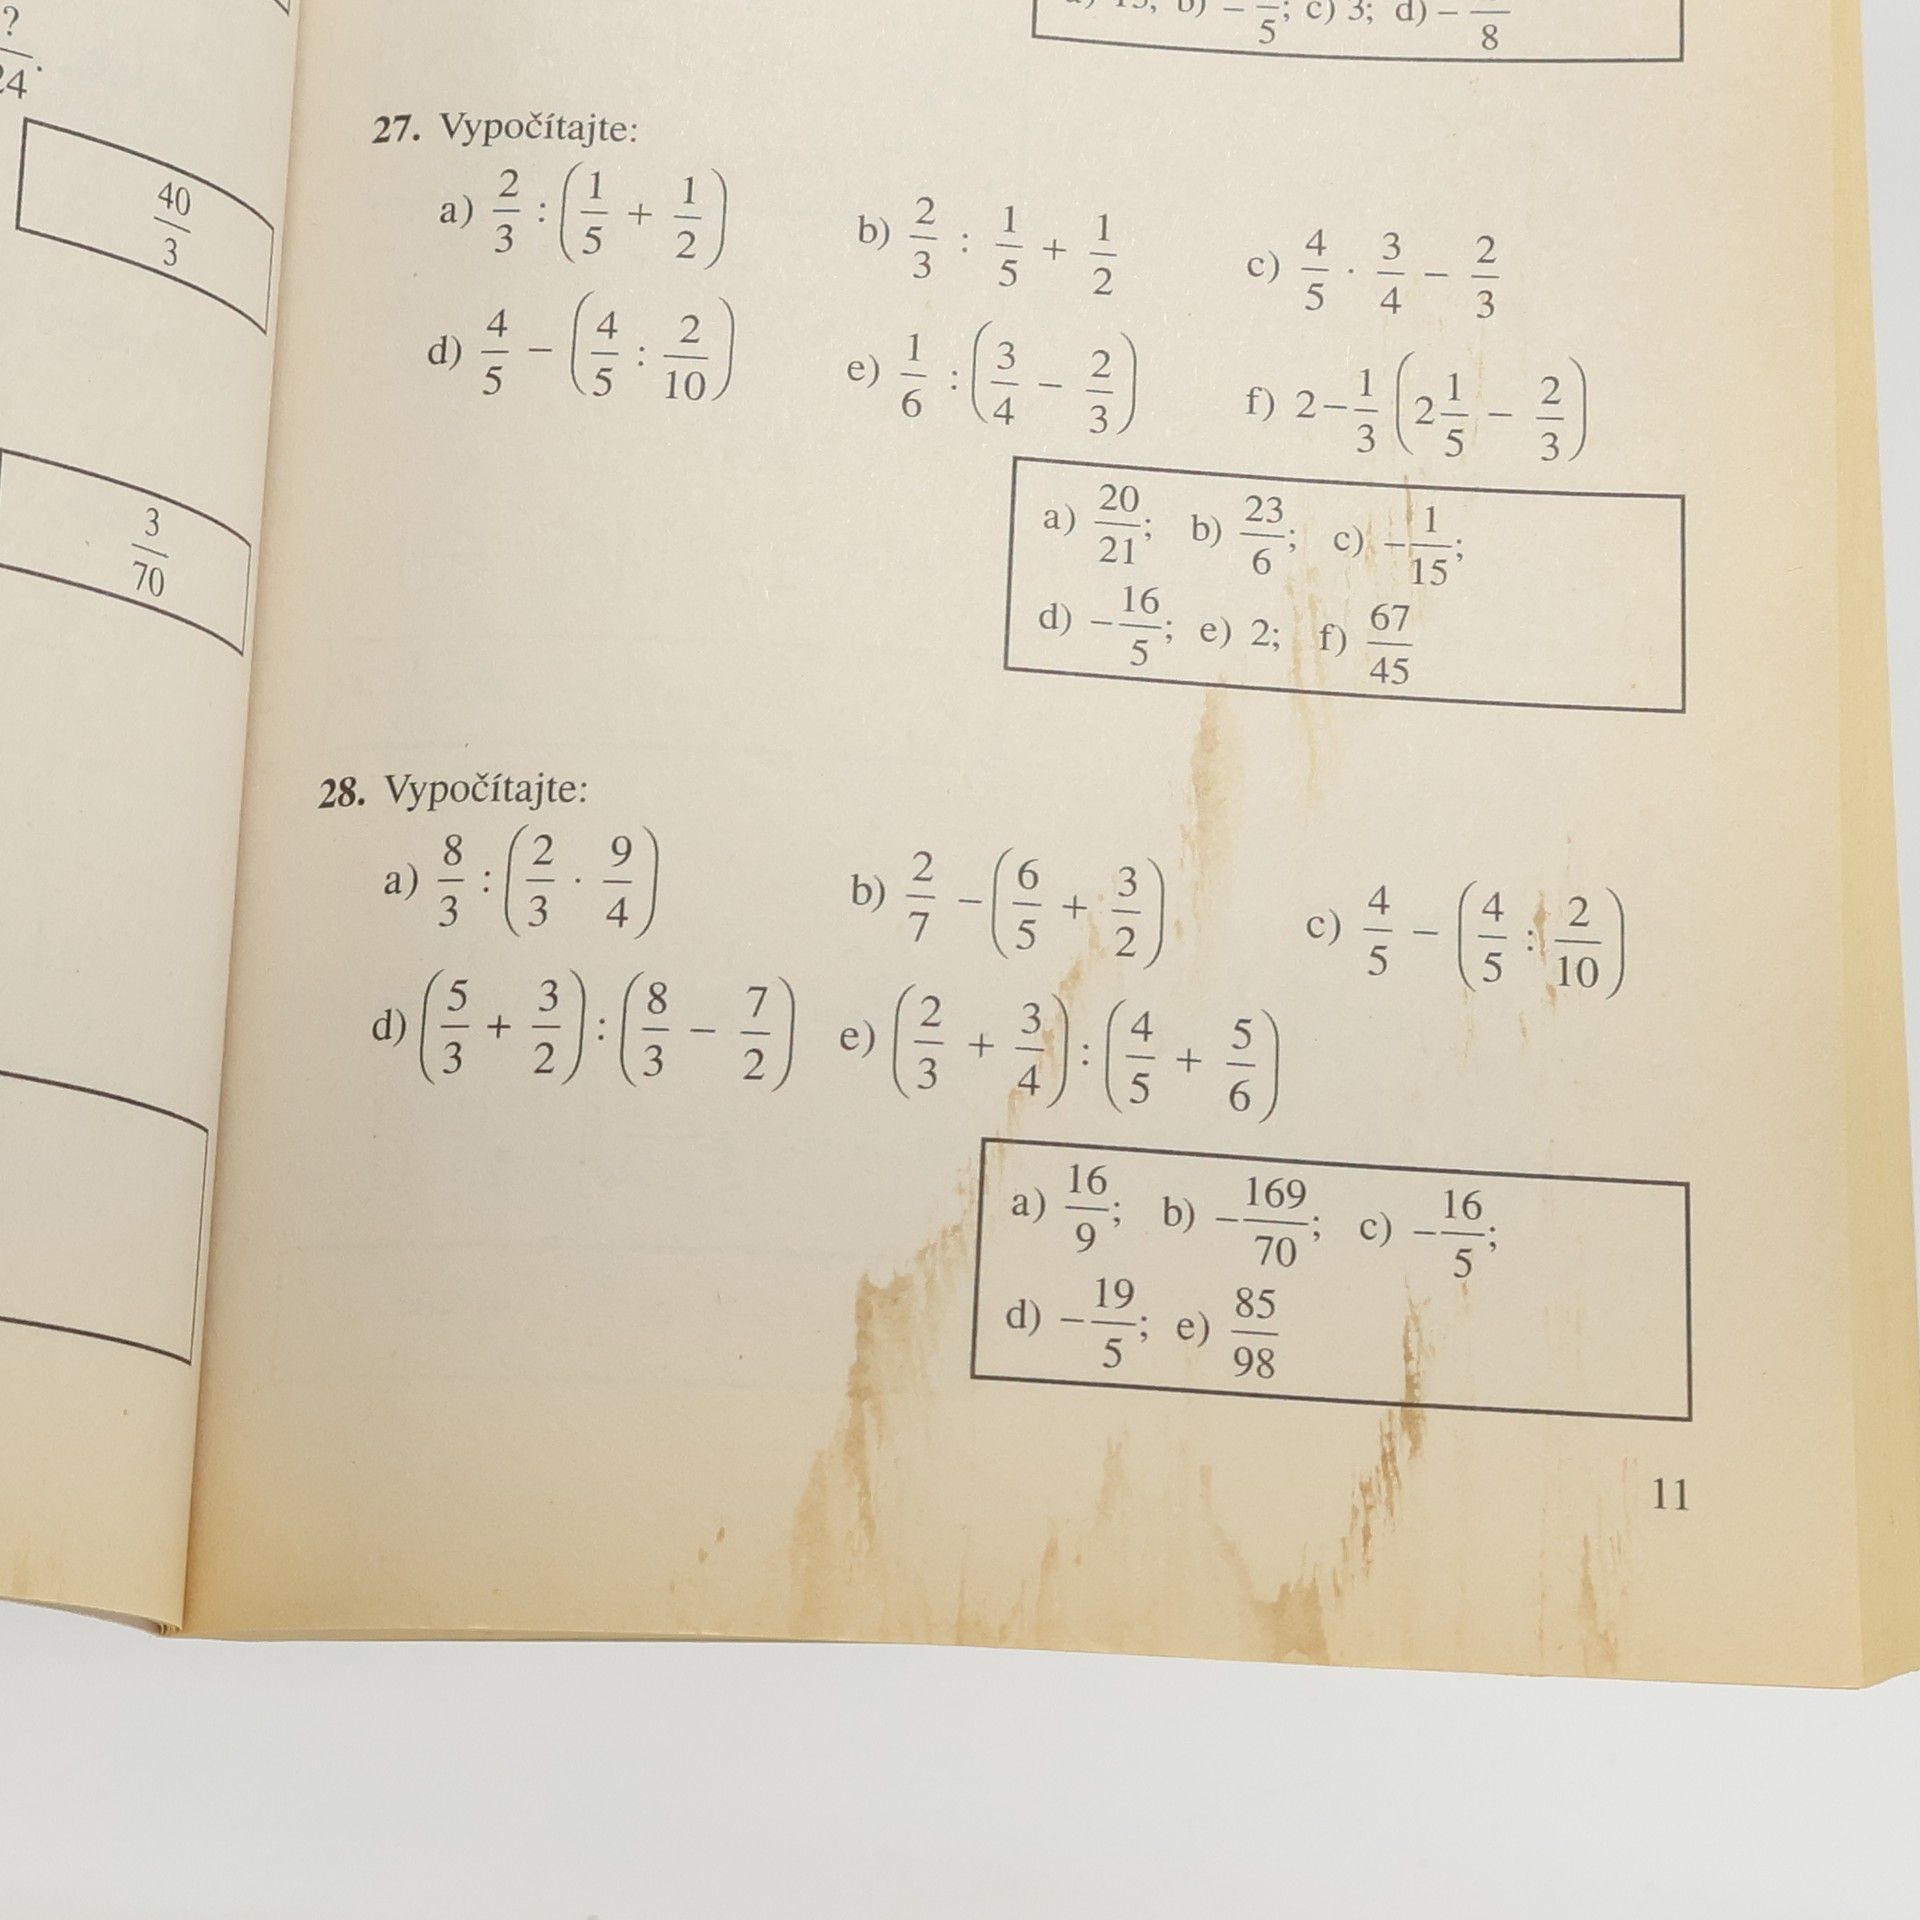 ?
24.
40/3
3/70
5; c) 3; d) – 8
27. Vypočítajte:
a) 2/3 : (1/5 + 1/2) b) 2/3 : 1/5 + 1/2 c) 4/5 · 3/4 – 2/3
d) 4/5 – (4/5 : 2/10) e) 1/6 : (3/4 – 2/3) f) 2–1/3 (2 1/5 – 2/3)
a) 20/21; b) 23/6; c) –1/15;
d) –16/5; e) 2; f) 67/45
28. Vypočítajte:
a) 8/3 : (2/3 · 9/4) b) 2/7 –(6/5 + 3/2) c) 4/5 – (4/5 : 2/10)
d) (5/3 + 3/2) : (8/3 – 7/2) e) (2/3 + 3/4) : (4/5 + 5/6)
a) 16/9; b) –169/70; c) –16/5;
d) –19/5; e) 85/98
11